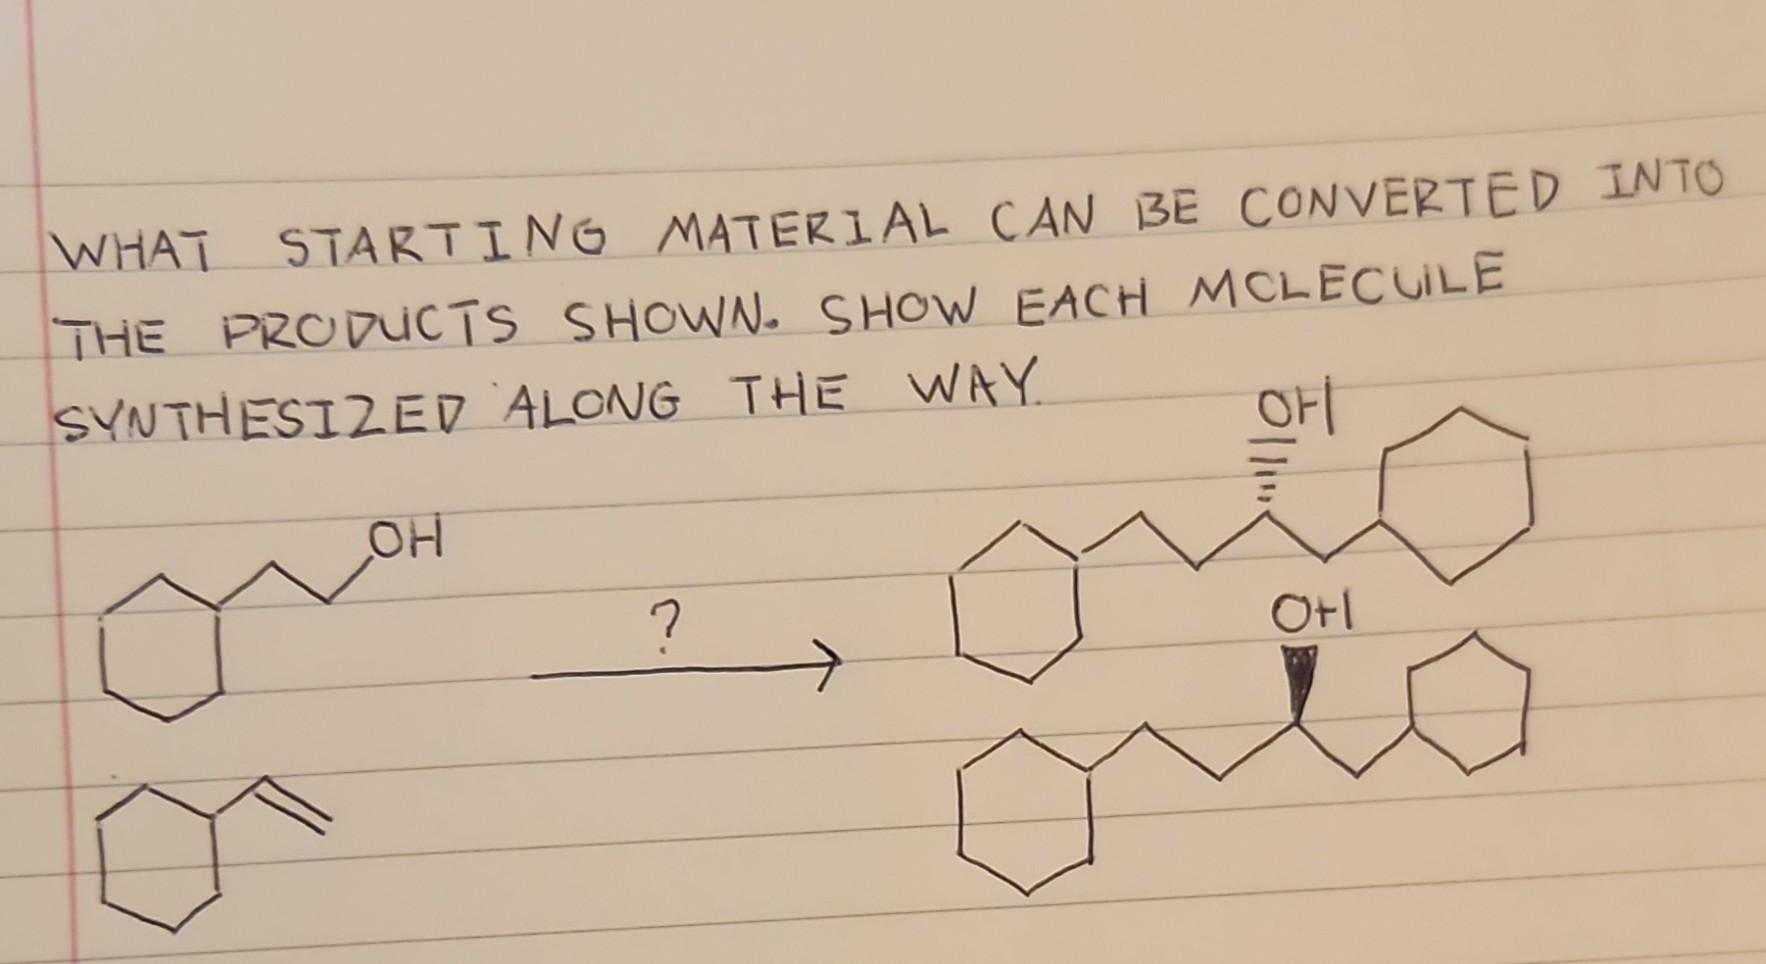 WHAT STARTING MATERIAL CAN BE CONVERTED INTO
THE PRODUCTS SHOWN. SHOW EACH MOLECULE
SYNTHESIZED ALONG THE WAY.
OH
OH
?
OH